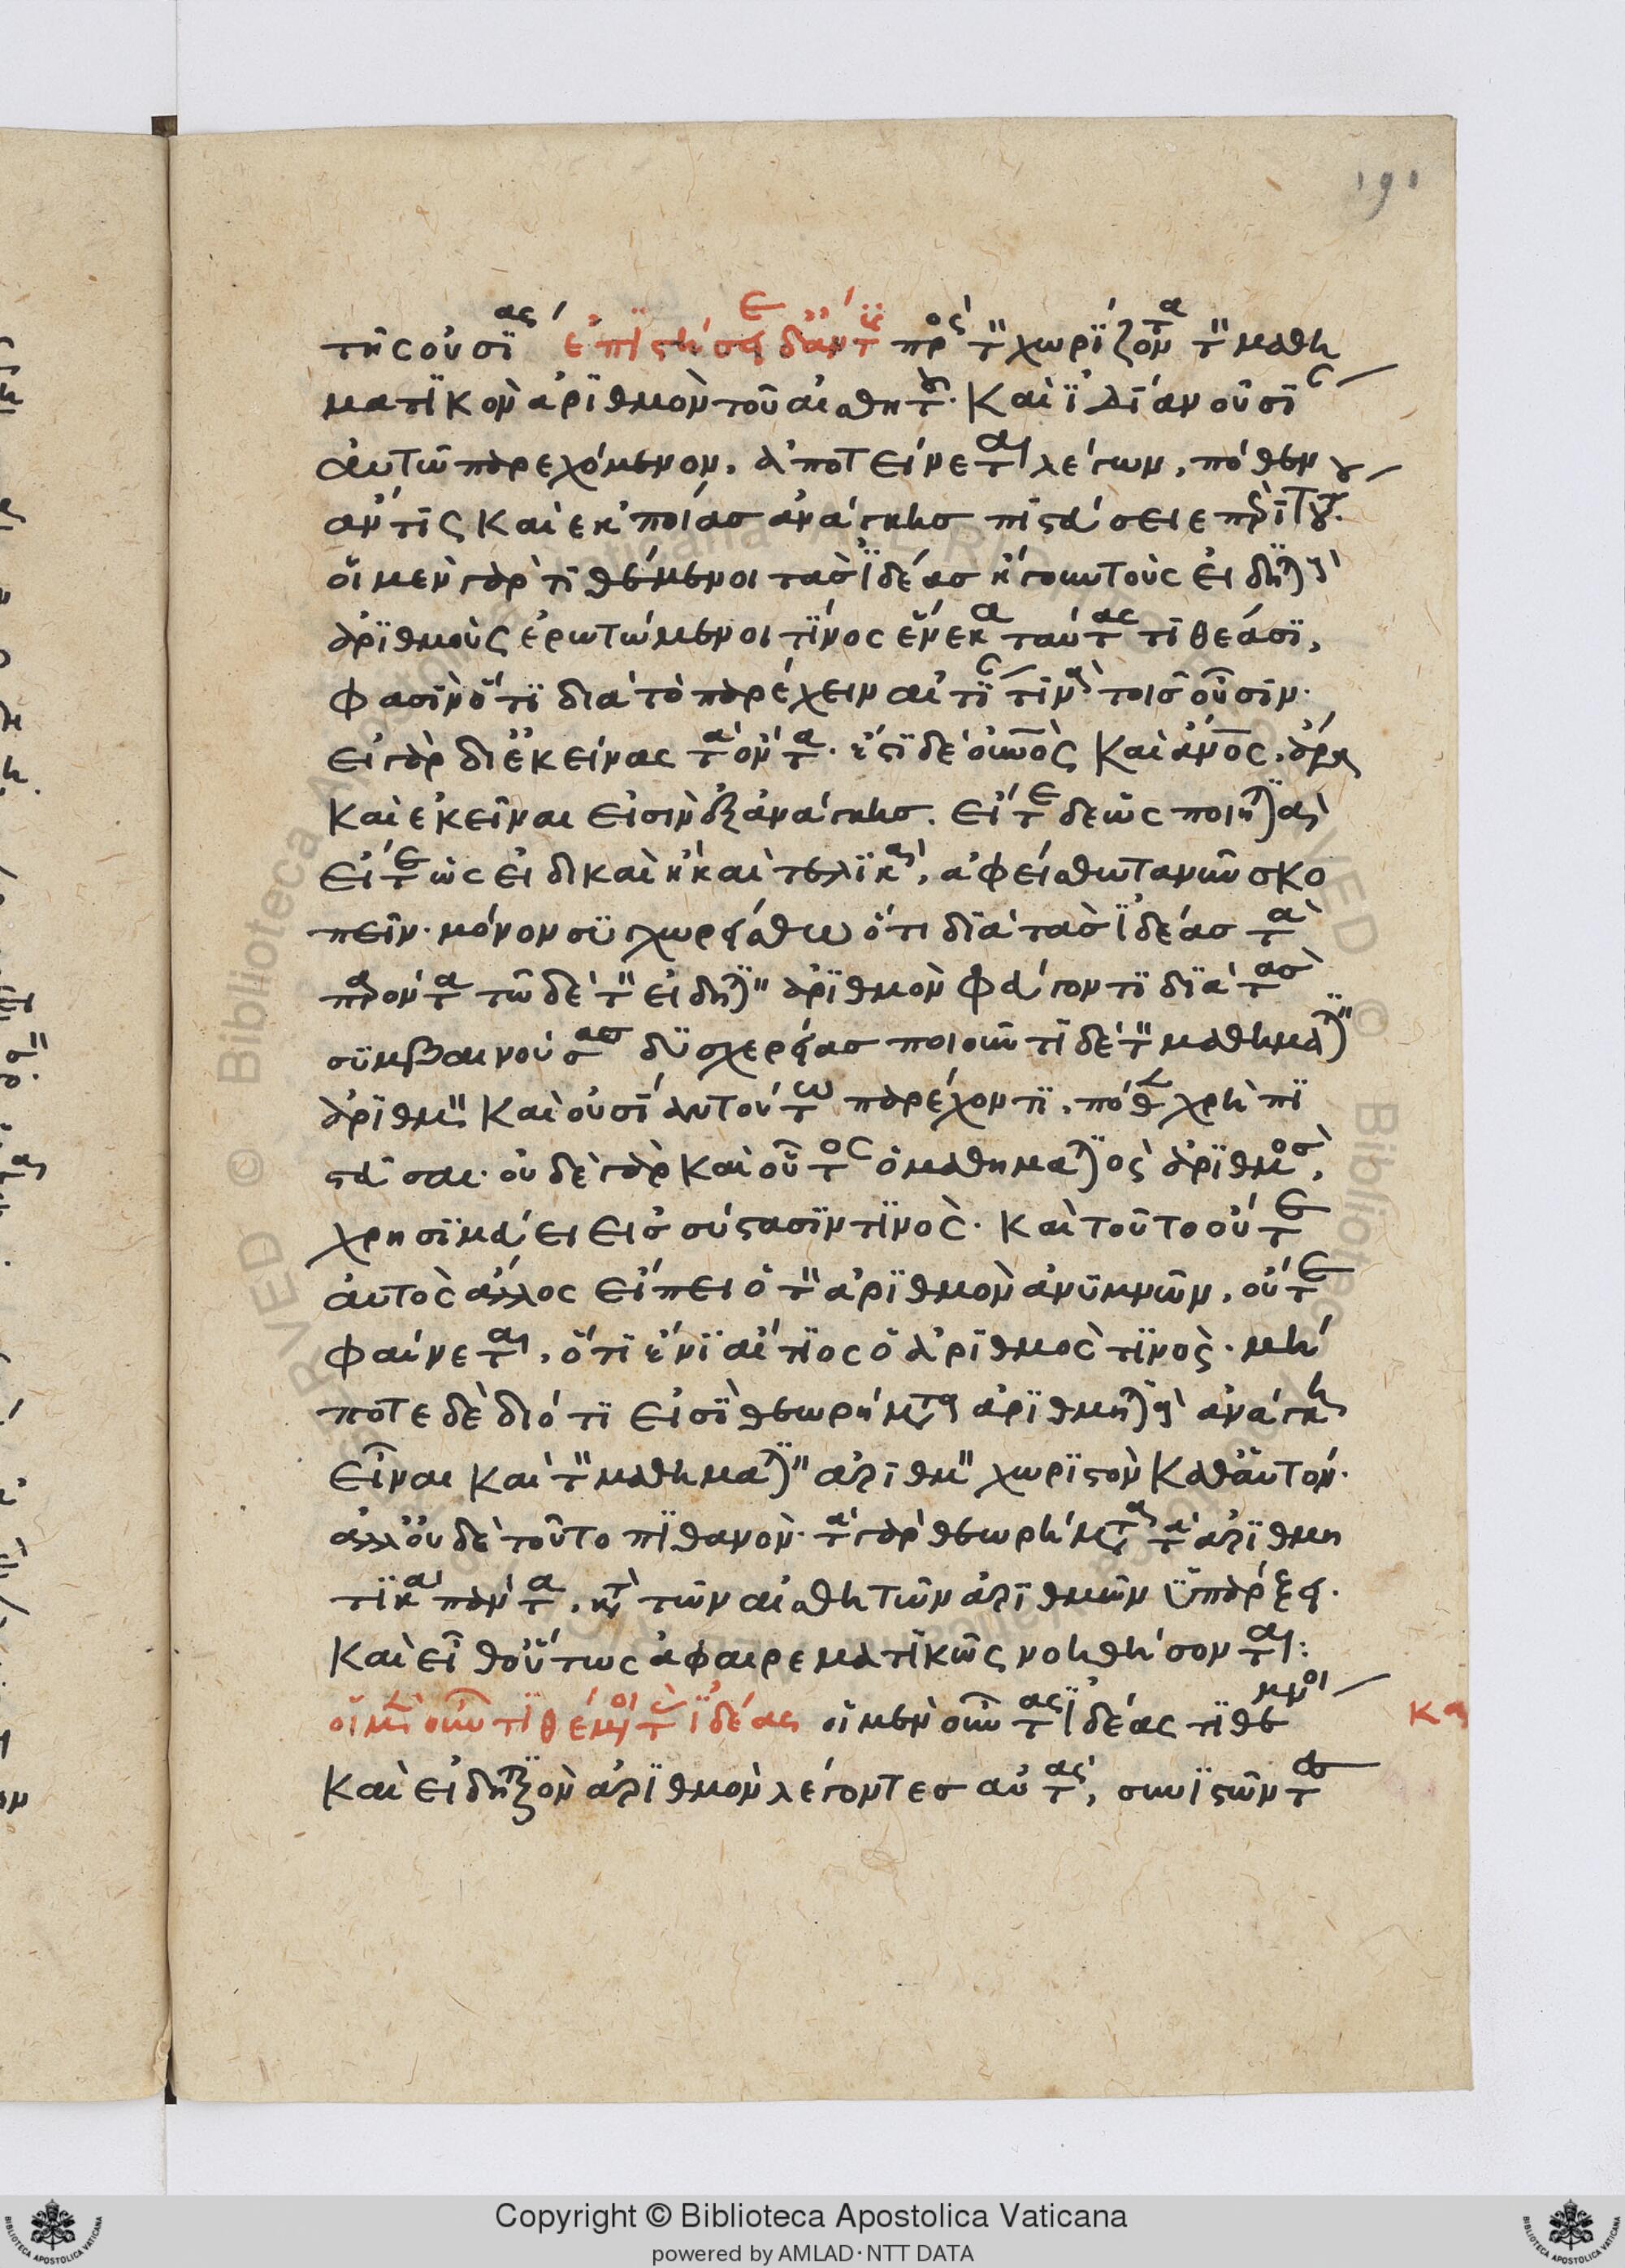 191
τῆς οὐσίας ἐπιστήσειε δ' ἄν τις πρὸς τὸν χωρίζοντα τὸν μαθη
ματικὸν ἀριθμὸν τοῦ αἰσθητοῦ· καὶ ἰδίαν οὐσίαν
αὐτῶ παρεχόμενον, ἀποτείνεται λέγων, πόθεν
ἄν τις καὶ ἐκ ποίας ἀνάγκης πιστώσειε περὶ τούτου.
οἱ μὲν γὰρ τιθέμενοι τὰς ἰδέας ἤγουν τοὺς εἰδητικοὺς
ἀριθμοὺς ἐρωτώμενοι τίνος ἕνεκα ταύτας τιθέασι,
φασὶν ὅτι διὰ τὸ παρέχειν αἰτίαν τινὰ τοῖς οὖσιν·
εἰ γὰρ δι' ἐκείνας τὰ ὄντα· ἔστι δὲ οὐνὸς καὶ ἄνος, ἄρα
καὶ ἐκεῖναι εἰσὶν ἐξ ἀνάγκης. εἴτε δὲ ὡς ποιητικαὶ
εἴτε ὡς εἰδικαὶ ἢ καὶ τελικαὶ, ἀφείσθω τανῦν σκο
πεῖν· μόνον συγχωρείσθω ὅτι διὰ τὰς ἰδέας τὰ
παρόντα τῶ δὲ τὸν εἰδητικὸν ἀριθμὸν φάγοντι διὰ τὰς
συμβαινούσας δυσχερείας ποιοῦντι δὲ τὸν μαθηματικὸν
ἀριθμὸν καὶ οὐσίαν τούτω παρέχοντι, πόθεν χρὴ πι
στῶσαι· οὐδὲ γὰρ καὶ οὗτος ὁ μαθηματικὸς ἀριθμὸς,
χρησιμεύει εἰς σύστασίν τινος· καὶ τοῦτο οὔτε
αὐτὸς ἄλλος εἴπει ὁ τὸν ἀριθμὸν ἀνυμνῶν, οὔτε
φαίνεται, ὅτι ἐνὶ αἴτιος ὁ ἀριθμὸς τινὸς· μή
ποτε δὲ διότι εἰσὶ θεωρήματα ἀριθμητικὰ ἀνάγκη
εἶναι καὶ τὸν μαθηματικὸν ἀριθμὸν χωριστὸν καθ' αὑτόν·
ἀλλ' οὐδὲ τοῦτο πιθανόν· τὰ γὰρ θεωρήματα τὰ ἀριθμη
τικὰ πάντα, κατὰ τῶν αἰσθητῶν ἀριθμῶν ὑπάρξει·
καὶ εἶθ' οὕτως ἀφαιρεματικῶς νοηθήσονται:
οἱ μὲν οὖν τιθέμενοι τὰς ἰδέας οἱ μὲν οὖν τὰς ἰδέας τιθέμενοι
καὶ εἰδητικὸν ἀριθμὸν λέγοντες αὐτὰς, συνιστῶντα
Copyright © Biblioteca Apostolica Vaticana
powered by AMLAD·NTT DATA